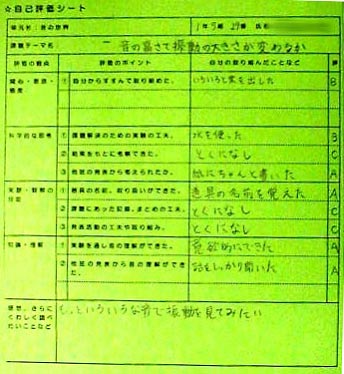 ☆自己評価シート
単元名：音の世界 1年5組 29番 氏名
課題テーマ名 音の高さで振動の大きさが変わるか
評価の観点 評価のポイント 自分の取り組んだことなど 評
関心・意欲・態度 ① 自分からすすんで取り組めた。 いろいろと案を出した B
科学的な思考 ① 課題解決のための実験の工夫。 水を使った B
② 結果をもとに考察できた。 とくになし C
③ 他班の発表から考えられたか。 紙にちゃんと書いた A
実験・観察の技能 ① 器具の名前、取り扱いができた。 道具の名前を覚えた A
② 課題にあった記録、まとめの工夫。 とくになし C
③ 発表活動の工夫や取り組み。 とくになし C
知識・理解 ① 実験を通し音の理解ができた。 意欲的にできた A
② 他班の発表から音の理解ができた。 話をしっかり聞いた A
感想、さらにくわしく調べたいことなど もっといろいろな音で振動を見てみたい